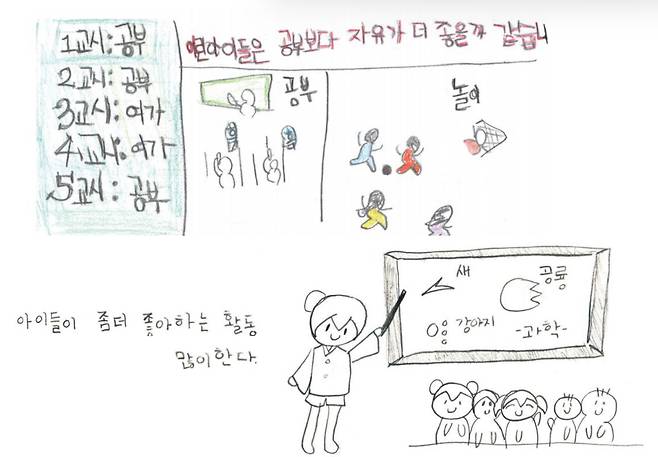 1교시: 공부
2교시: 공부
3교시: 여가
4교시: 여가
5교시: 공부
아이들은 공부보다 자유가 더 좋을까
공부
놀이
아이들이 좀더 좋아하는 활동
많이한다.
새
공룡
강아지
-과학-